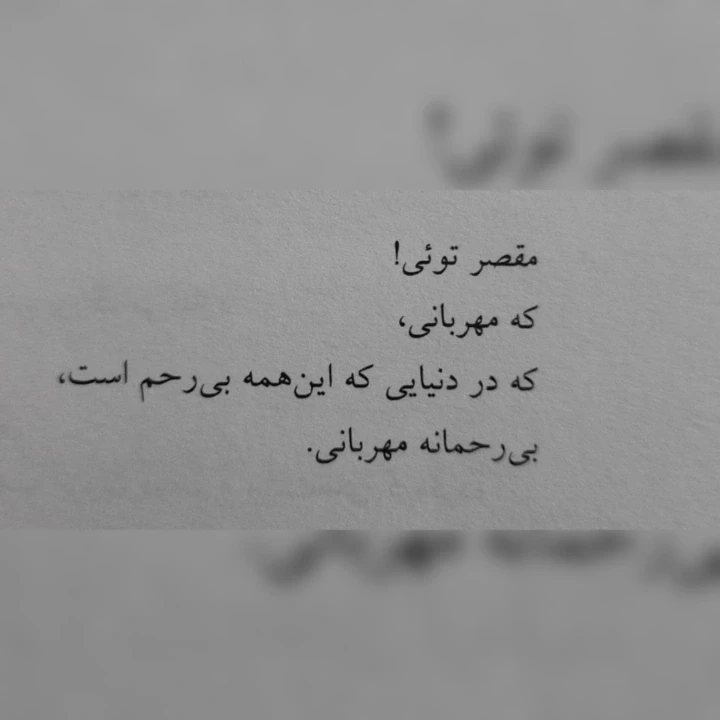 مقصر توئی!
که مهربانی،
که در دنیایی که این‌همه بی‌رحم است،
بی‌رحمانه مهربانی.